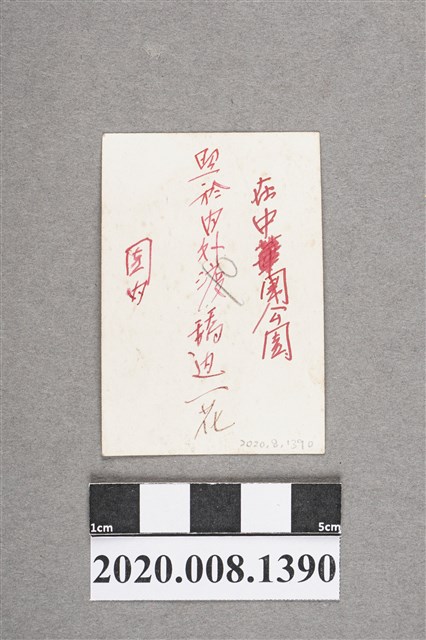 在中華公園
照於内外渡橋一花
園内
2020.8.1390
1cm
5cm
2020.008.1390